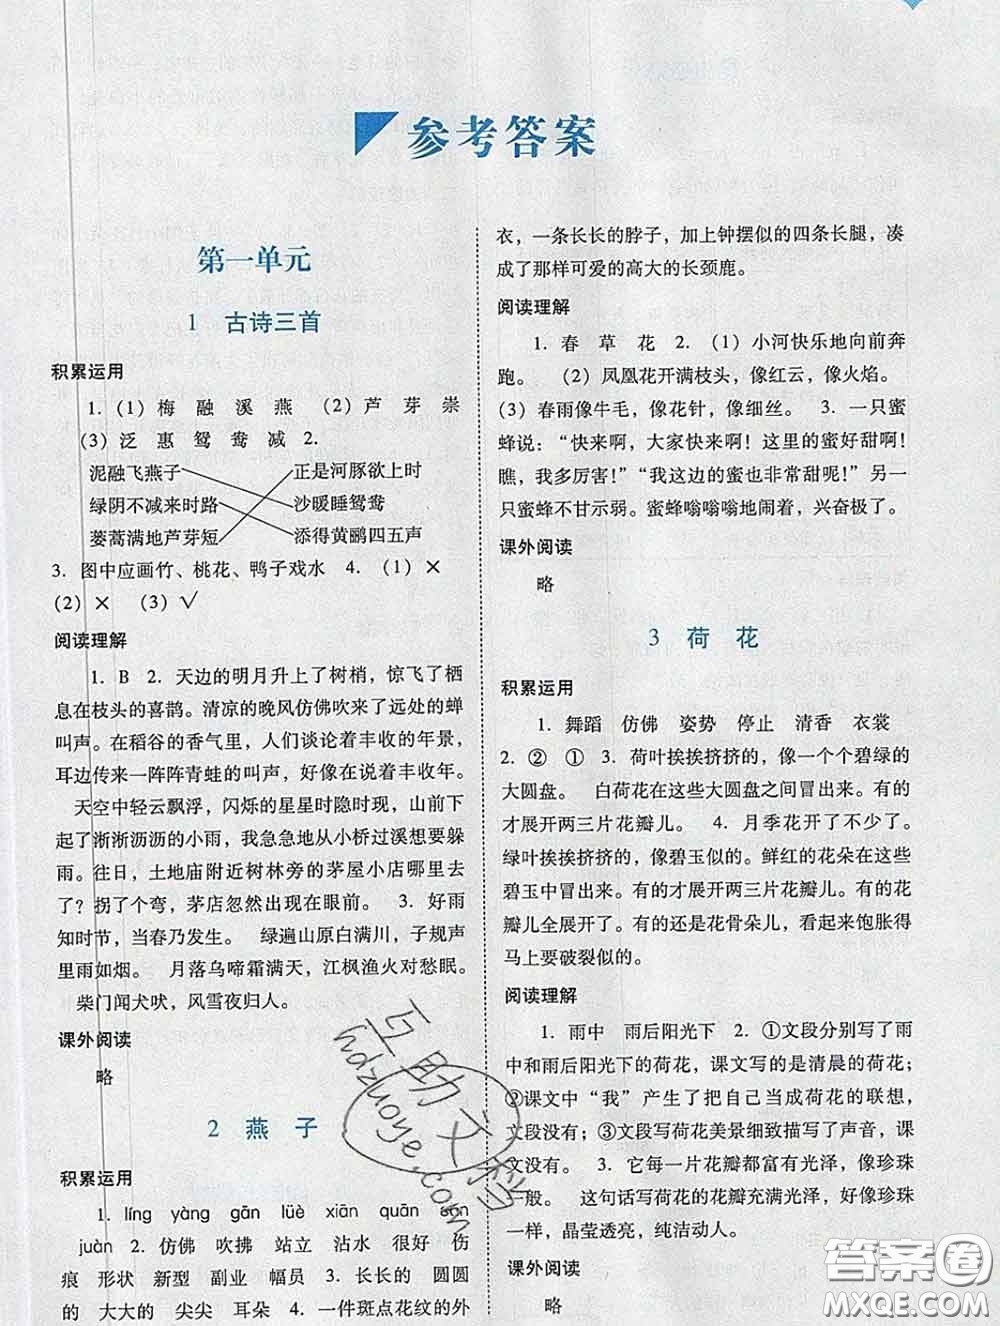 参考答案
第一单元
1 古诗三首
积累运用
1. (1) 梅 融 溪 燕 (2) 芦 芽 崇
(3) 泛 惠 鸳 鸯 减 2.
泥融飞燕子 正是河豚欲上时
绿阴不减来时路 沙暖睡鸳鸯
蒌蒿满地芦芽短 添得黄鹂四五声
3. 图中应画竹、桃花、鸭子戏水 4. (1) ×
(2) × (3) √
阅读理解
1. B 2. 天边的明月升上了树梢，惊飞了栖
息在枝头的喜鹊。清凉的晚风仿佛吹来了远处的蝉
叫声。在稻谷的香气里，人们谈论着丰收的年景，
耳边传来一阵阵青蛙的叫声，好像在说着丰收年。
天空中轻云飘浮，闪烁的星星时隐时现，山前下
起了淅淅沥沥的小雨，我急急地从小桥过溪想要躲
雨。往日，土地庙附近树林旁的茅屋小店哪里去
了？拐了个弯，茅店忽然出现在眼前。 3. 好雨
知时节，当春乃发生。 绿遍山原白满川，子规声
里雨如烟。 月落乌啼霜满天，江枫渔火对愁眠。
柴门闻犬吠，风雪夜归人。
课外阅读
略
2 燕 子
积累运用
1. líng yàng gǎn lüè xiān quān
juàn 2. 仿佛 吹拂 站立 沾水 很好 伤
痕 形状 新型 副业 幅员 3. 长长的 圆圆
的 大大的 尖尖 耳朵 4. 一件斑点花纹的外
衣，一条长长的脖子，加上钟摆似的四条长腿，凑
成了那样可爱的高大的长颈鹿。
阅读理解
1. 春 草 花 2. (1) 小河快乐地向前奔
跑。 (2) 凤凰花开满枝头，像红云，像火焰。
(3) 春雨像牛毛，像花针，像细丝。 3. 一只蜜
蜂说：“快来啊，大家快来啊！这里的蜜好甜啊！
瞧，我多厉害！”“我这边的蜜也非常甜呢！”另一
只蜜蜂不甘示弱。蜜蜂嗡嗡嗡地闹着，兴奋极了。
课外阅读
略
3 荷 花
积累运用
1. 舞蹈 仿佛 姿势 停止 清香 衣裳
2. ② ① 3. 荷叶挨挨挤挤的，像一个个碧绿的
大圆盘。 白荷花在这些大圆盘之间冒出来。有的
才展开两三片花瓣儿。 4. 月季花开了不少了。
绿叶挨挨挤挤的，像碧玉似的。鲜红的花朵在这些
碧玉中冒出来。有的才展开两三片花瓣儿。有的花
瓣儿全展开了。有的还是花骨朵儿，看起来饱胀得
马上要破裂似的。
阅读理解
1. 雨中 雨后阳光下 2. ①文段分别写了雨
中和雨后阳光下的荷花，课文写的是清晨的荷花；
②课文中“我”产生了把自己当成荷花的联想，
文段没有；③文段写荷花美景细致描写了声音，课
文没有。 3. 它每一片花瓣都富有光泽，像珍珠
一般。 这句话写荷花的花瓣充满光泽，好像珍珠
一样，晶莹透亮，纯洁动人。
课外阅读
略
互助文档
hdzuoye.com
答案圈
MXQE.COM